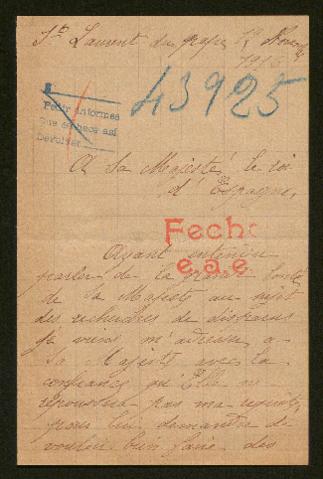 St Laurent du 
1916
43925
Pedir informes
Que se hace así
Devolver
A Sa Majesté le roi
d'Espagne,
Fecho
e.a.e.
Ayant entendu
parler de la grande bonté
de Sa Majesté au sujet
des recherches de disparus
je viens m'adresser a
Sa Majesté avec la
confiance qu'Elle ne
repoussera pas ma requête,
pour lui demander de
vouloir bien faire des